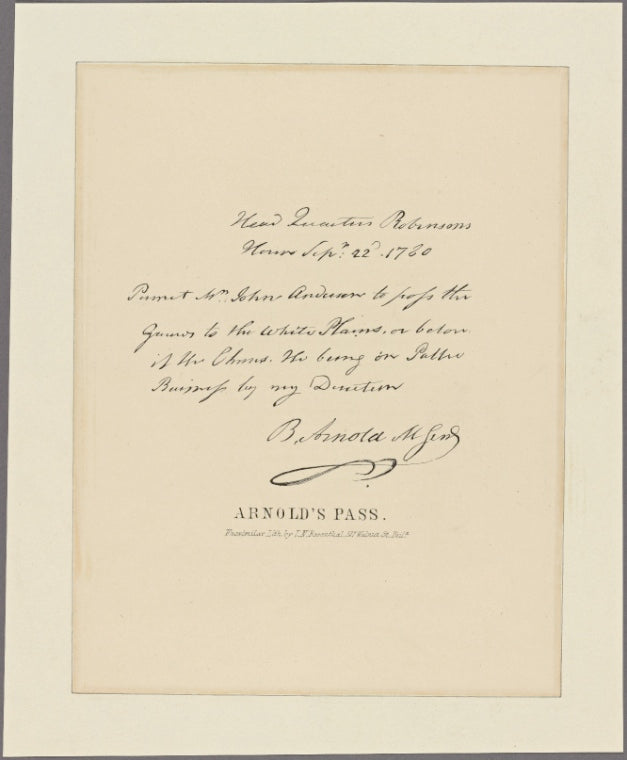 Head Quarters Robinsons
House Sepr. 22d. 1780
Permit Mr. John Anderson to pass the
Guards to the White Plains, or below
if He Chuses. He being on Public
Buisness by my Direction
B. Arnold M Genl
ARNOLD'S PASS.
Facsimilar Lith. by L.N. Rosenthal, Walnut St. Phila.